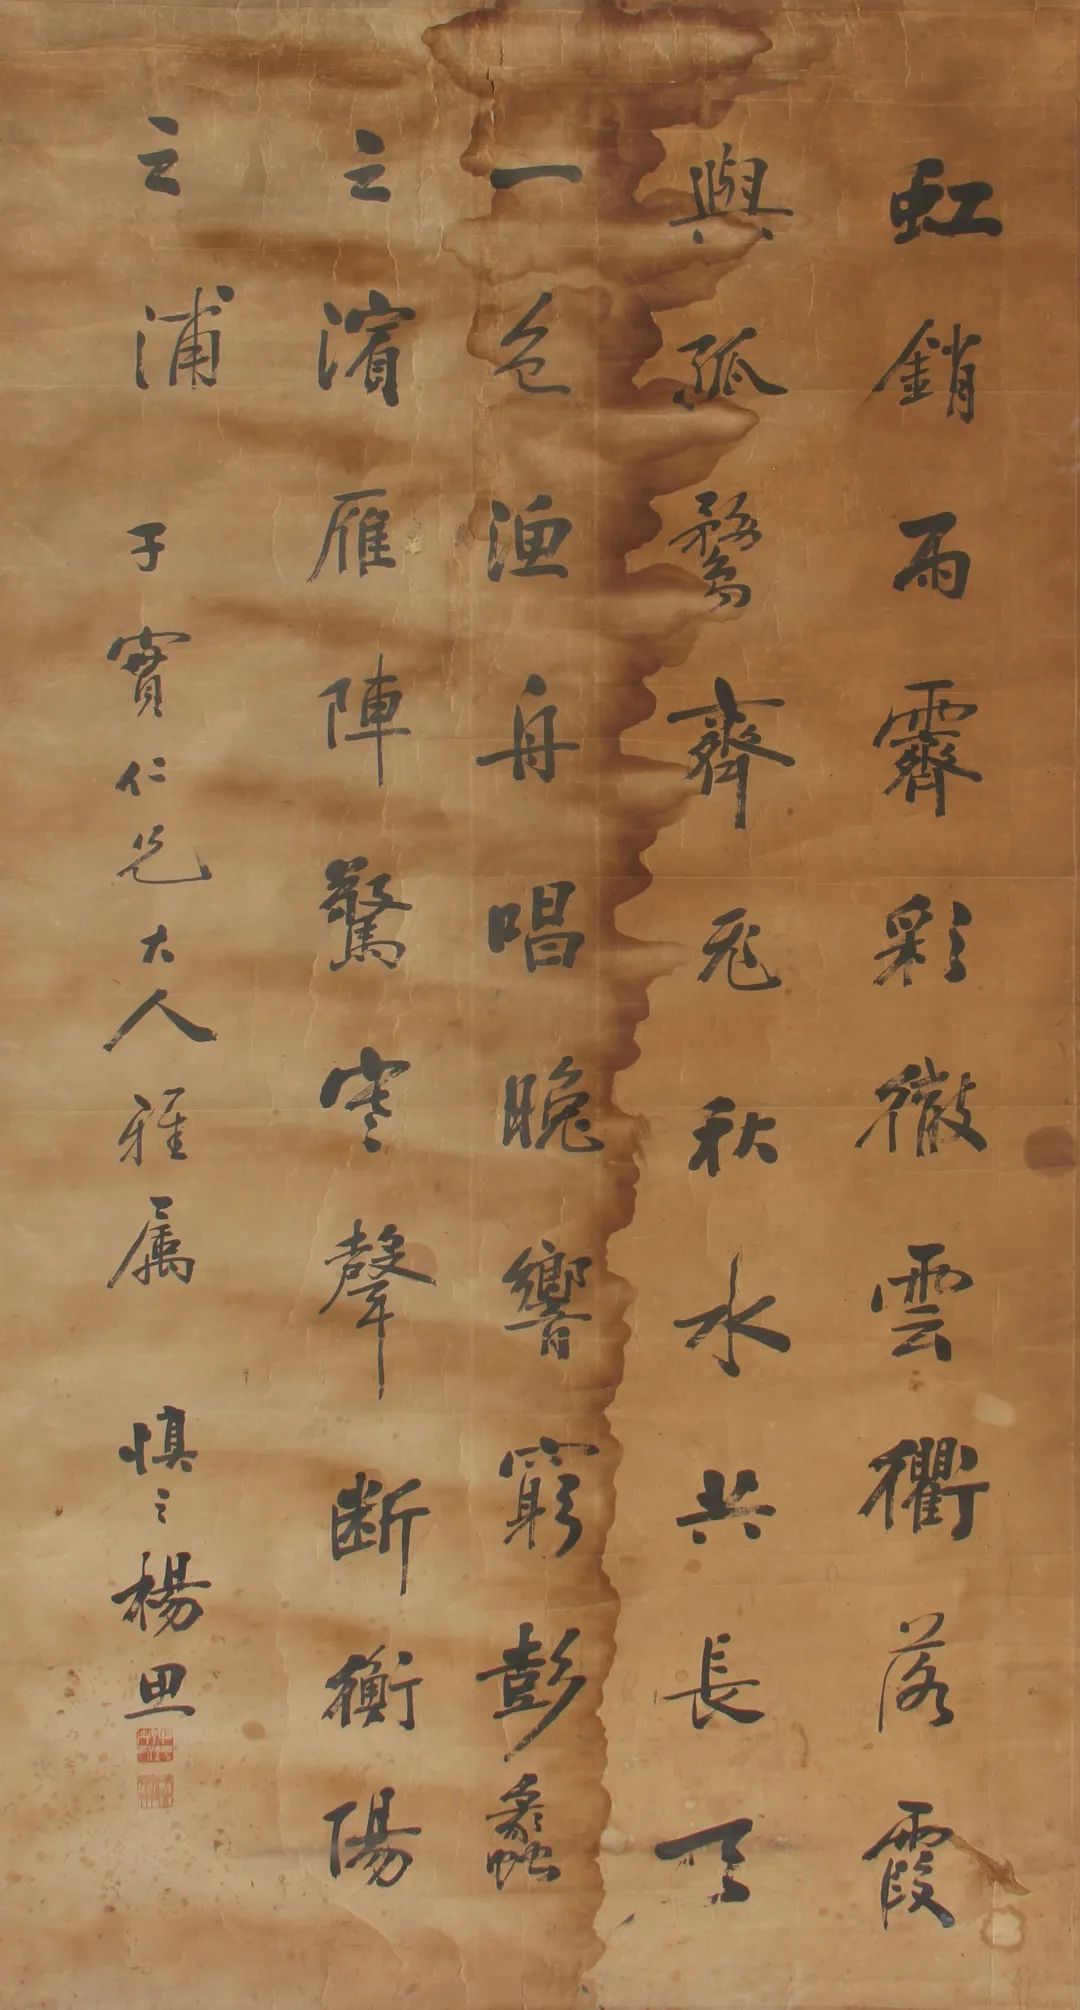 虹銷雨霽彩徹雲衢落霞
與孤鶩齊飛秋水共長天
一色漁舟唱晚響窮彭蠡
之濱雁陣驚寒聲斷衡陽
之浦 子實仁兄大人雅属 慎之楊